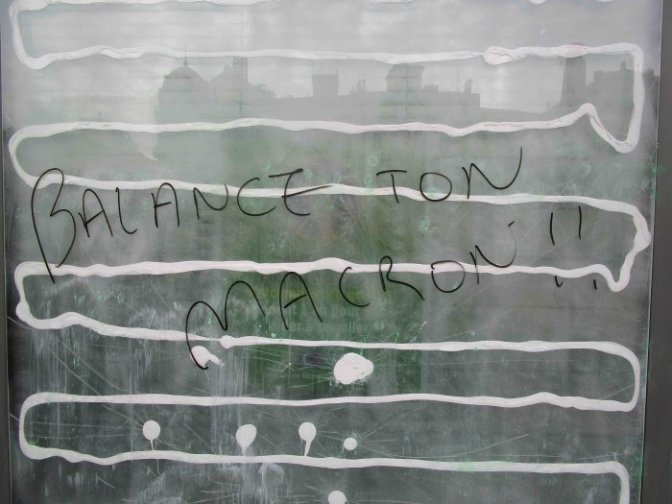 BALANCE TON
MACRON !!